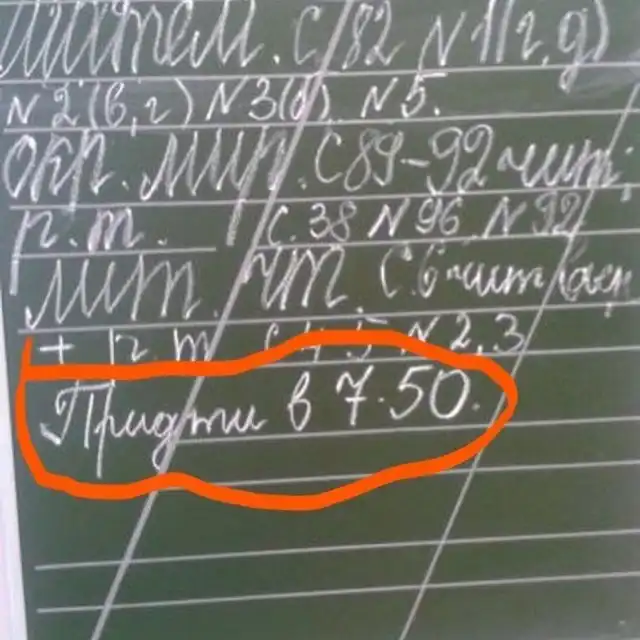 матем. с 82 N 1(г,д)
N 2(б,г) N 3(б) N 5.
окр. мир. с 89-92 чит,
р.т. с. 38 N 96 N 92
лит. чт. с. 6 чит
+ р.т с 4-5 N 2,3
Придти в 7.50.